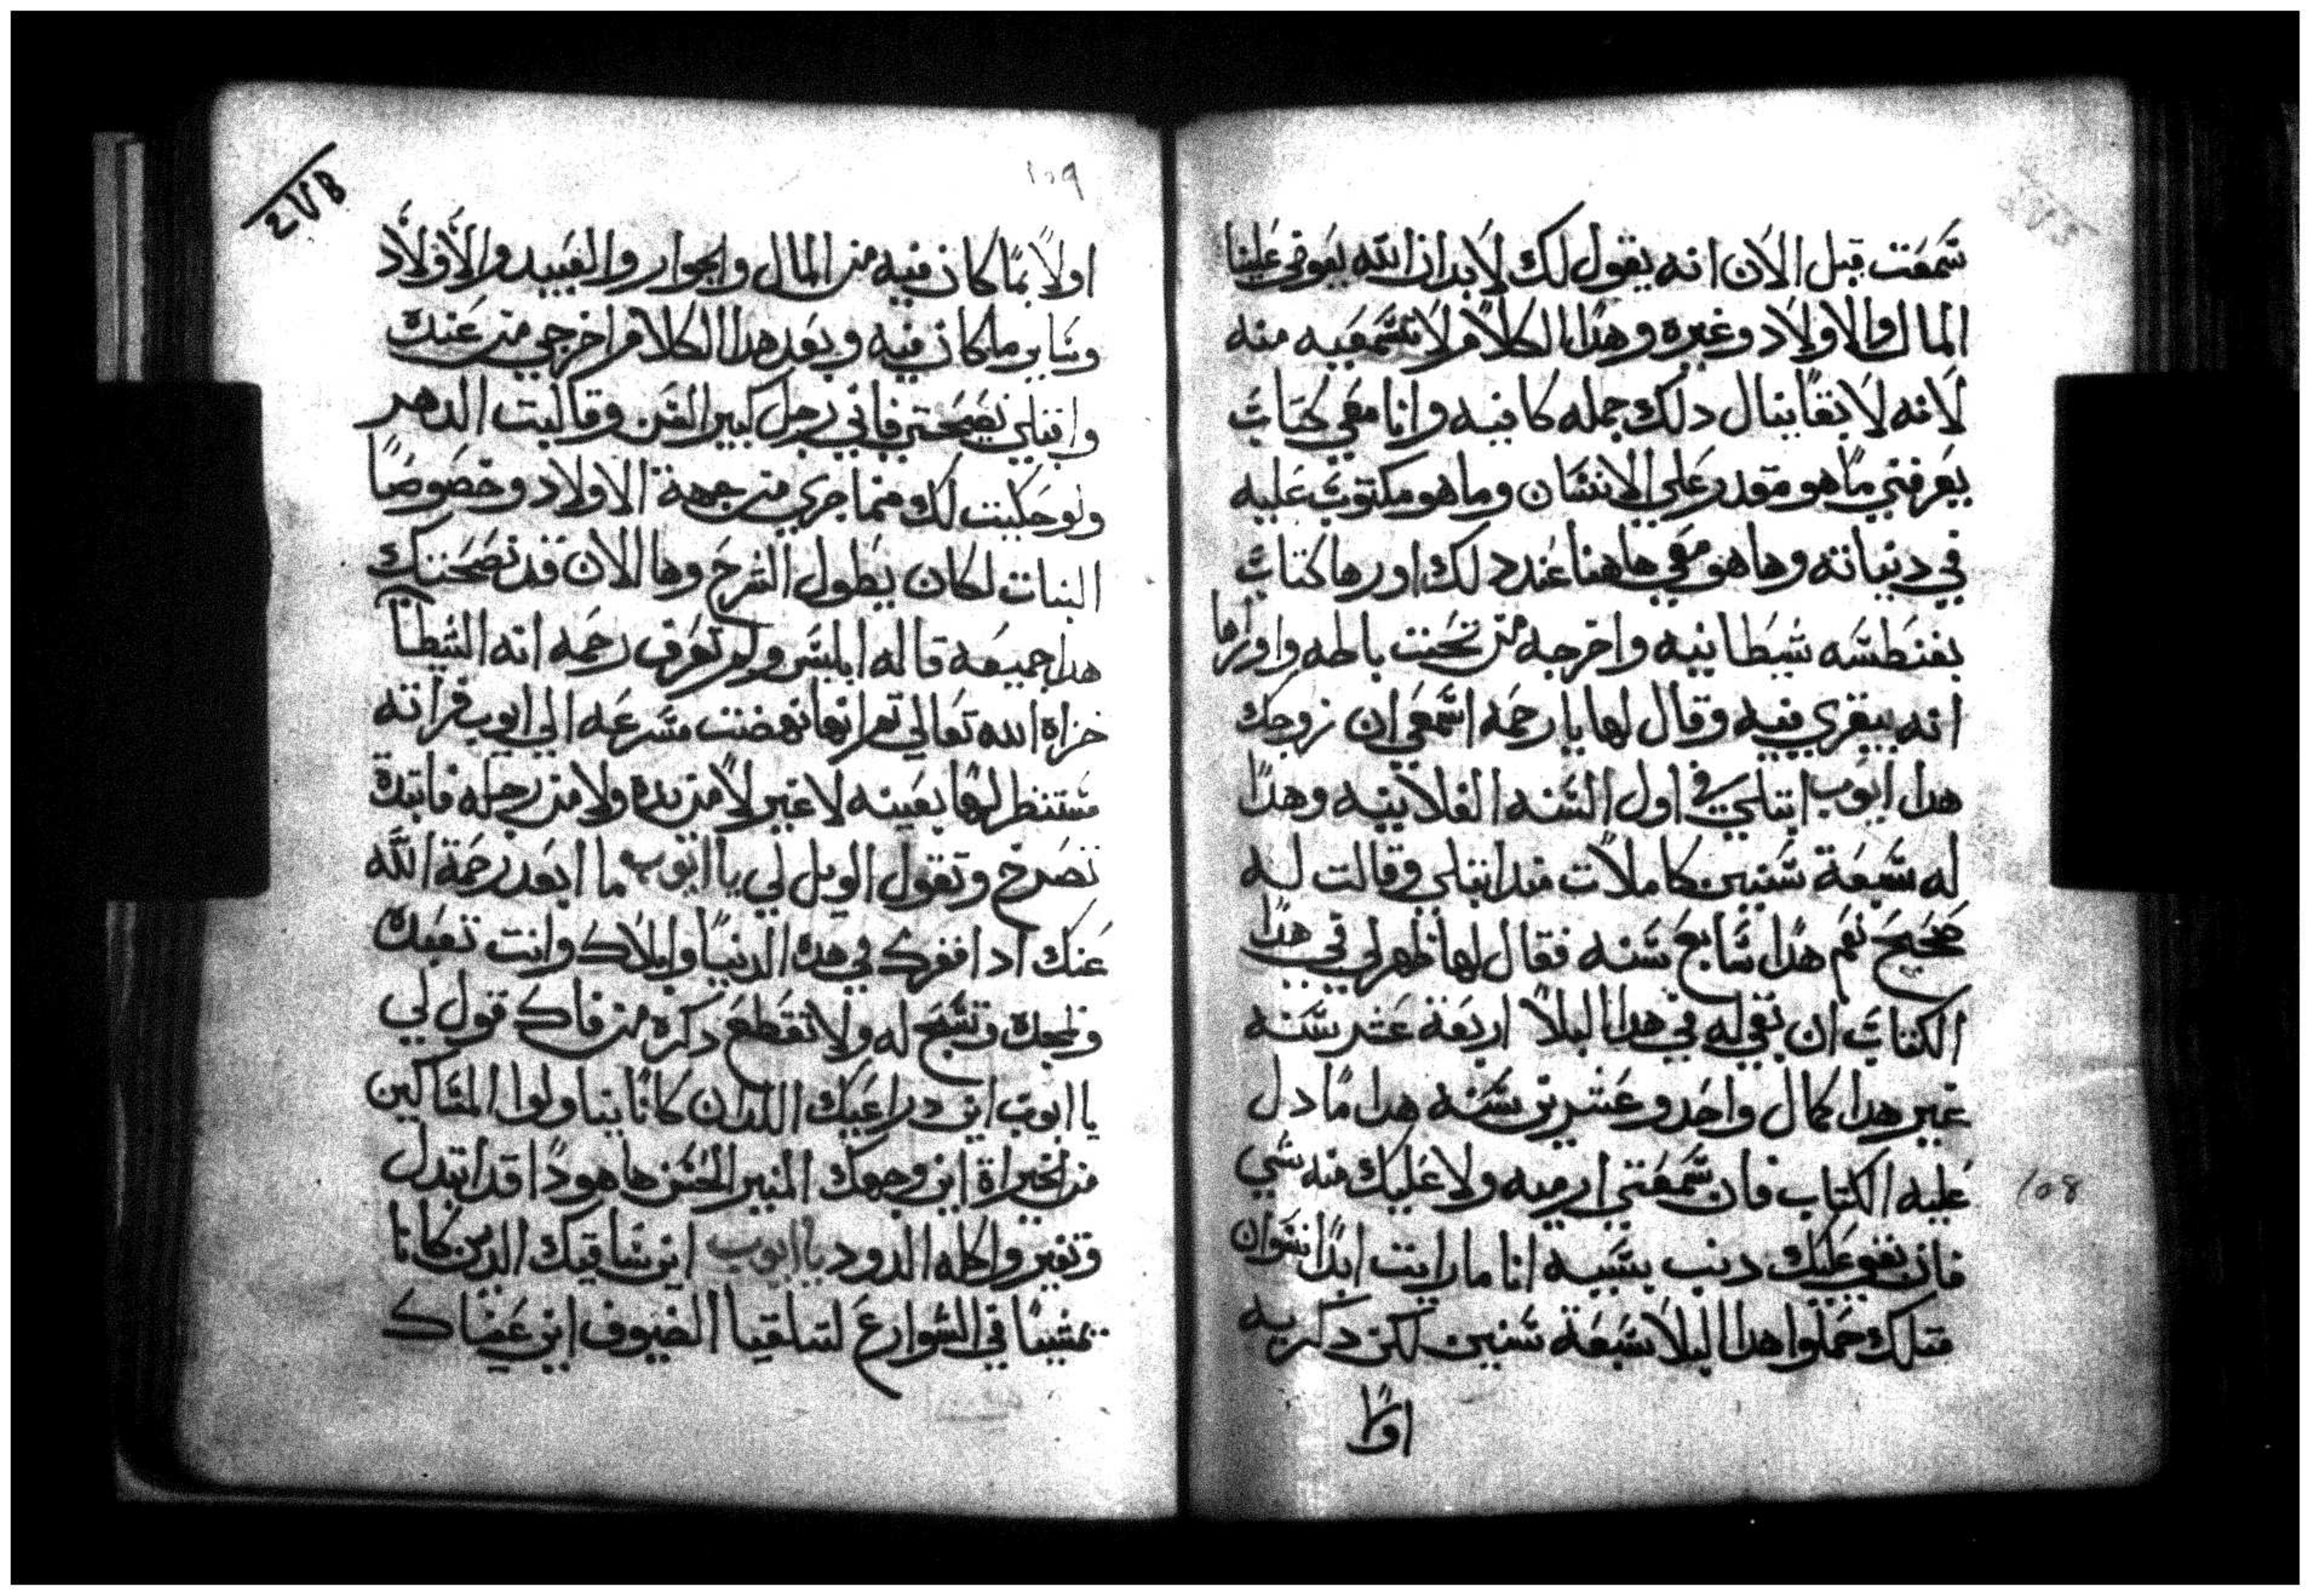 سمعت قبل الان انه يقول لك لابد ان الله يعوض علينا
المال والاولاد وغيره وهدا الكلام لا تسمعيه منه
لانه لا بقا ينال دلك جمله كافيه وانا معي كتاب
يعرفني ما هو مقدر علي الانسان وما هو مكتوب عليه
في دنياته وها هو معي هاهنا عند دلك اورها كتاب
بفنطسه شيطانيه واخرجه من تحت باطه واوراها
انه بيقري فيه وقال لها يا رحمه اسمعي ان زوجك
هدا ايوب ابتلي في اول السنه الفلانيه وهدا
له سبعة سنين كاملات مند ابتلي وقالت له
صحيح نعم هدا سابع سنه فقال لها ظهر لي في هدا
الكتاب ان بقي له في هدا البلا اربعة عشر سنه
غير هدا كمال واحد وعشرين سنه هدا ما دل
عليه الكتاب فان سمعتي ارميه ولا عليك منه شي
فان بقي عليك دنب بسببه انا ما رايت ابدا نسوان
متلك حملوا هدا البلا سبعة سنين لكن دكريه
اولا
109
اولا بما كان فيه من المال والجوار والعبيد والاولاد
وساير ما كان فيه وبعد هدا الكلام اخرجي من عنده
واقبلي نصيحتي فاني رجل كبير السن وقاسيت الدهر
ولو حكيت لك منما جري من جهة الاولاد وخصوصا
البنات لكان يطول الشرح وها الان قد نصحتك
هدا جميعه قاله ابليس ولم تعرف رحمه انه الشيطان
خزاه الله تعالي تم انها نهضت مسرعه الي ايوب فراته
مستنظر لها بعينه لا غير لا من يده ولا من رجله فابتدت
تصرخ وتقول الويل لي يا ايوب ما ابعد رحمة الله
عنك ادا افقرك في هده الدنيا وابلاك وانت تعبده
وتمجده وتسبح له ولا تقطع دكره من فاك قول لي
يا ايوب اين دراعيك اللدان كانا يناولوا المساكين
من الخيراة اين وجهك المنير الحسن ها هودا قد ابتدل
وتغير واكله الدود يا ايوب اين ساقيك الدين كانا
تمشيا في الشوارع لتتلقيا الضيوف اين عضاك
108